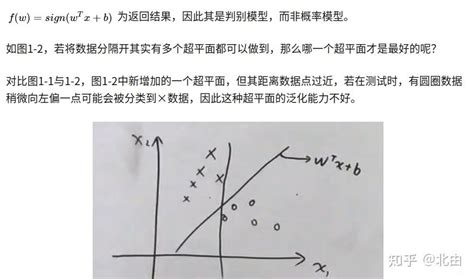 f(w) = sign(wᵀx + b) 为返回结果，因此其是判别模型，而非概率模型。
如图1-2，若将数据分隔开其实有多个超平面都可以做到，那么哪一个超平面才是最好的呢？
对比图1-1与1-2，图1-2中新增加的一个超平面，但其距离数据点过近，若在测试时，有圆圈数据
稍微向左偏一点可能会被分类到×数据，因此这种超平面的泛化能力不好。
x₂
wᵀx+b
x₁
知乎 @北由